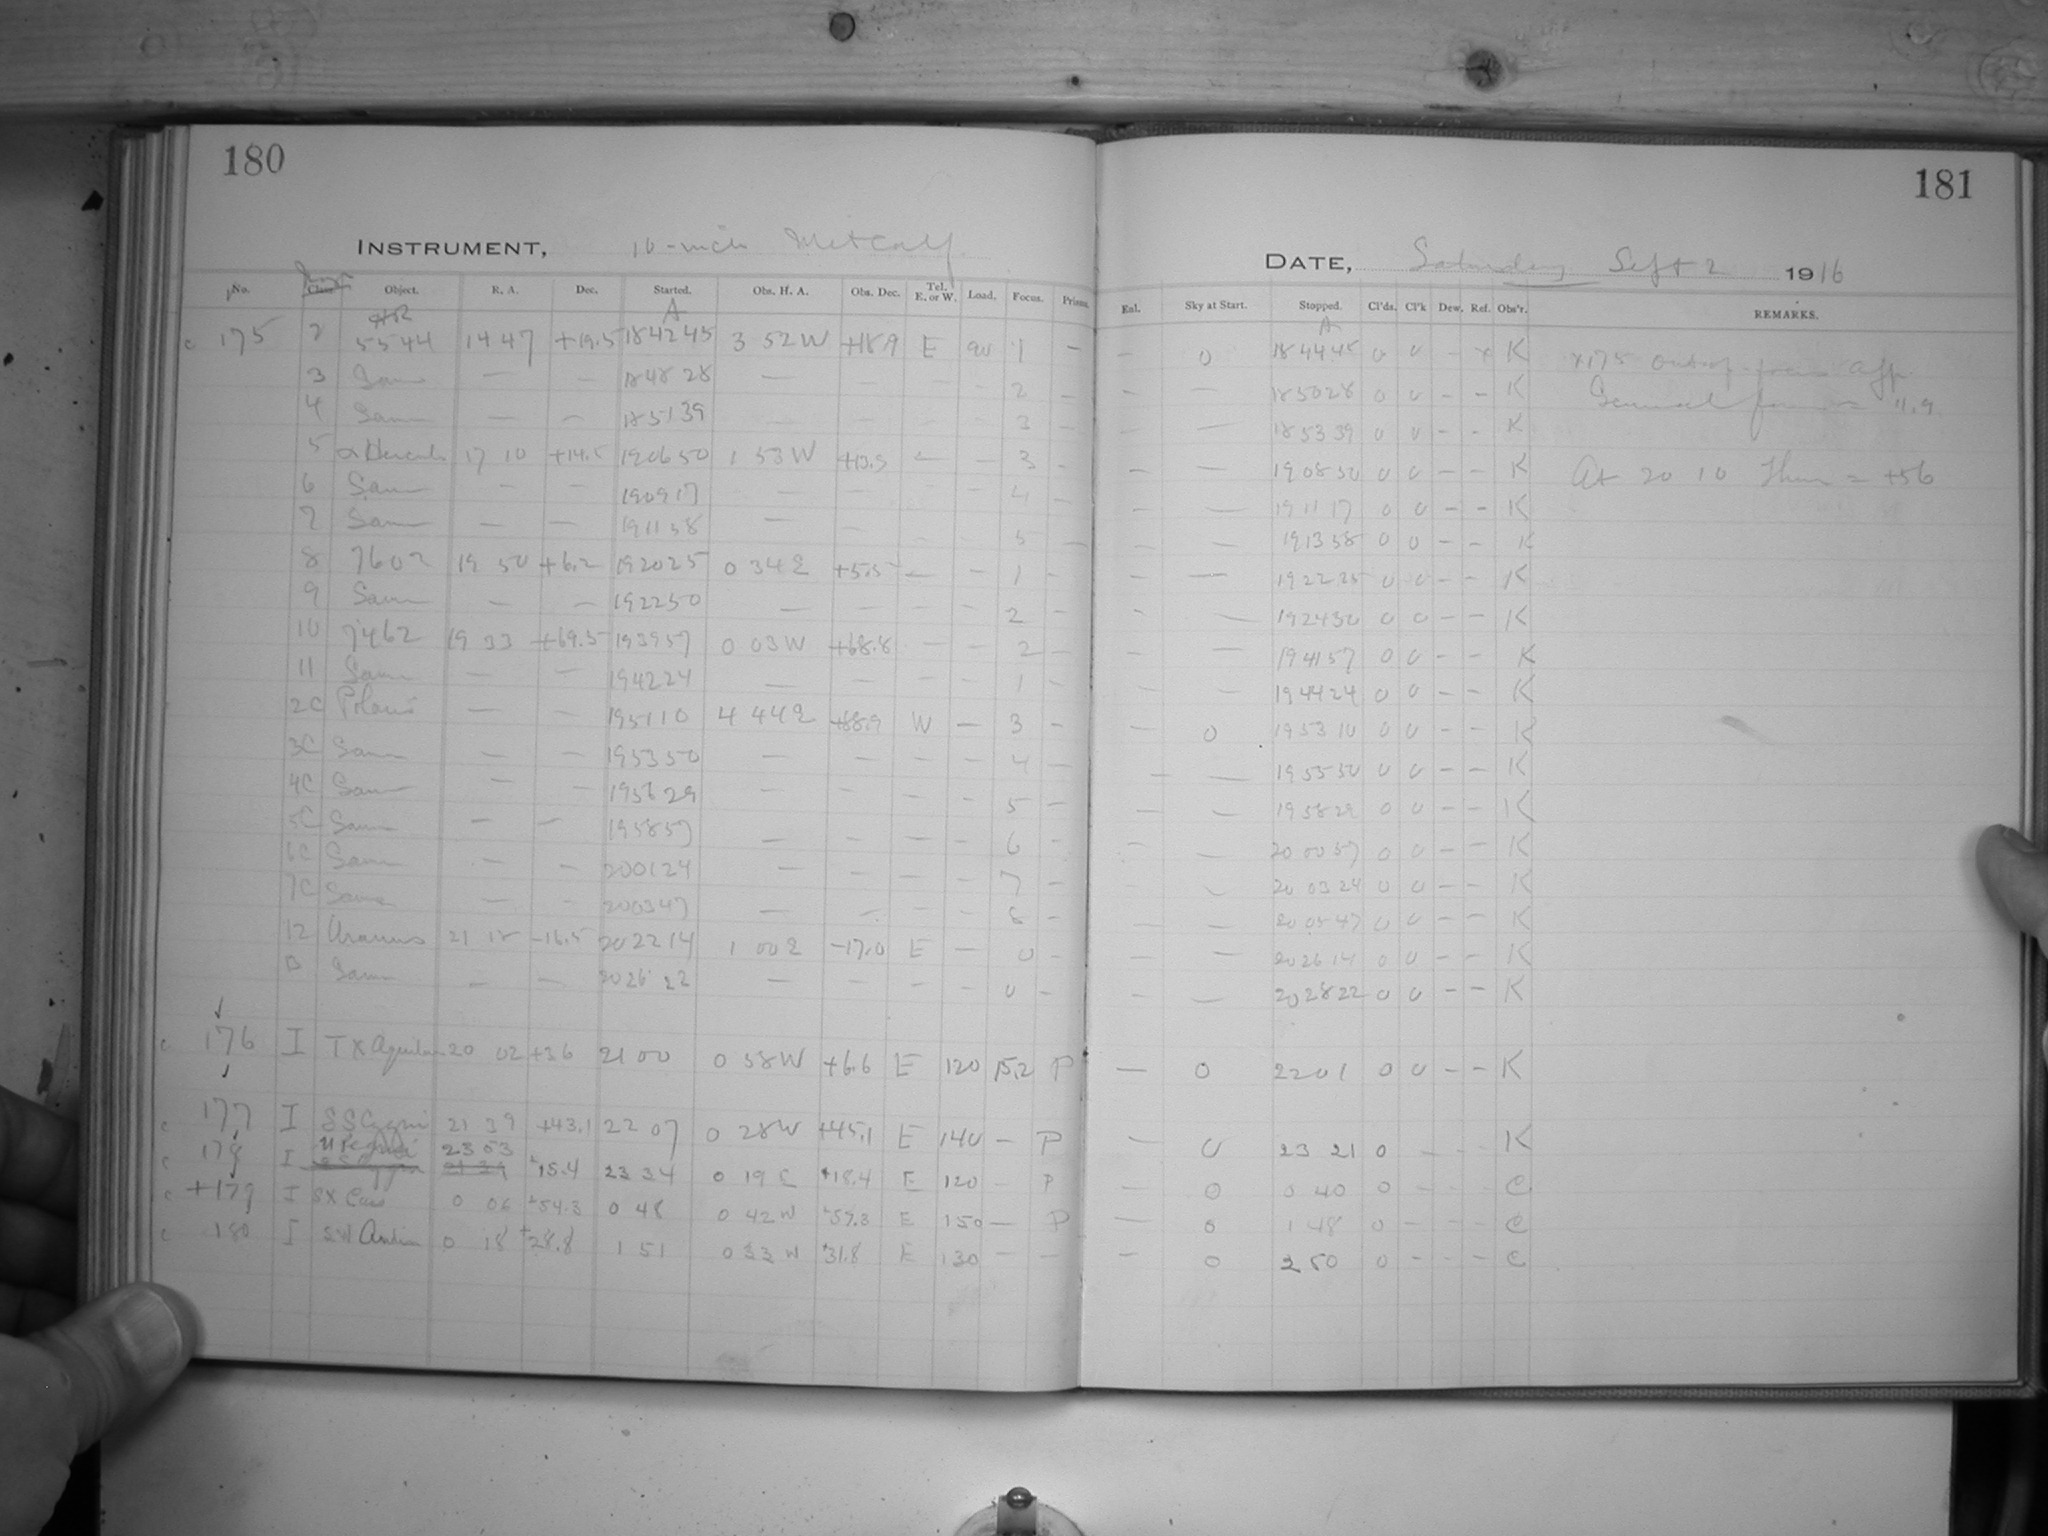 180
INSTRUMENT, 10-inch Metcalf
No. Class Object. R. A. Dec. Started. Obs. H. A. Obs. Dec. Tel. E. or W. Load. Focus. Prism.
A
c 175 2 5544 14 47 +19.5 184245 3 52 W +18.9 E 90 1 —
3 Same — — 184828 — — — — 2 —
4 Same — — 185139 — — — — 3 —
5 α Herculis 17 10 +14.5 190650 1 53 W +13.9 — — 3 —
6 Same — — 190917 — — — — 4 —
7 Same — — 191158 — — — — 5 —
8 7602 19 50 +6.2 192025 0 34 E +5.5 — — 1 —
9 Same — — 192250 — — — — 2 —
10 7462 19 33 +69.5 193957 0 03 W +68.8 — — 2 —
11 Same — — 194224 — — — — 1 —
2C Polaris — — 195110 4 44 E +88.9 W — 3 —
3C Same — — 195350 — — — — 4 —
4C Same — — 195629 — — — — 5 —
5C Same — — 195857 — — — — 6 —
6C Same — — 200124 — — — — 7 —
7C Same — — 200347 — — — — 8 —
12 Uranus 21 18 -16.5 202214 1 00 E -17.0 E — 0 —
13 Same — — 202622 — — — — 0 —
c 176 I TX Aquilae 20 02 +3.6 21 00 0 58 W +6.6 E 120 15.2 P
c 177 I SS Cygni 21 39 +43.1 22 07 0 28 W +45.1 E 140 — P
c 178 I U Pegasi 23 53 +15.4 23 34 0 19 E +18.4 E 120 — P
c +179 I SX Cass 0 06 +54.3 0 48 0 42 W +57.3 E 150 — P
c 180 I SW Andro 0 18 +28.8 1 51 0 33 W +31.8 E 130 — —
181
DATE, Saturday Sept 2 1916
Enl. Sky at Start. Stopped. Cl'ds. Cl'k Dew. Ref. Obs'r. REMARKS.
A
— 0 184445 0 0 - x K x175 out of focus
— — 185028 0 0 - - K
— — 185339 0 0 - - K
— — 190850 0 0 - - K At 20 10 Ther = +56
— — 191117 0 0 - - K
— — 191358 0 0 - - K
— — 192225 0 0 - - K
— — 192450 0 0 - - K
— — 194157 0 0 - - K
— — 194424 0 0 - - K
— 0 195310 0 0 - - K
— — 195550 0 0 - - K
— — 195829 0 0 - - K
— — 200057 0 0 - - K
— — 200324 0 0 - - K
— — 200547 0 0 - - K
— — 202614 0 0 - - K
— — 202822 0 0 - - K
— 0 22 01 0 0 - - K
— 0 23 21 0 - - - K
— 0 0 40 0 - - - C
— 0 1 48 0 - - - C
— 0 2 50 0 - - - C